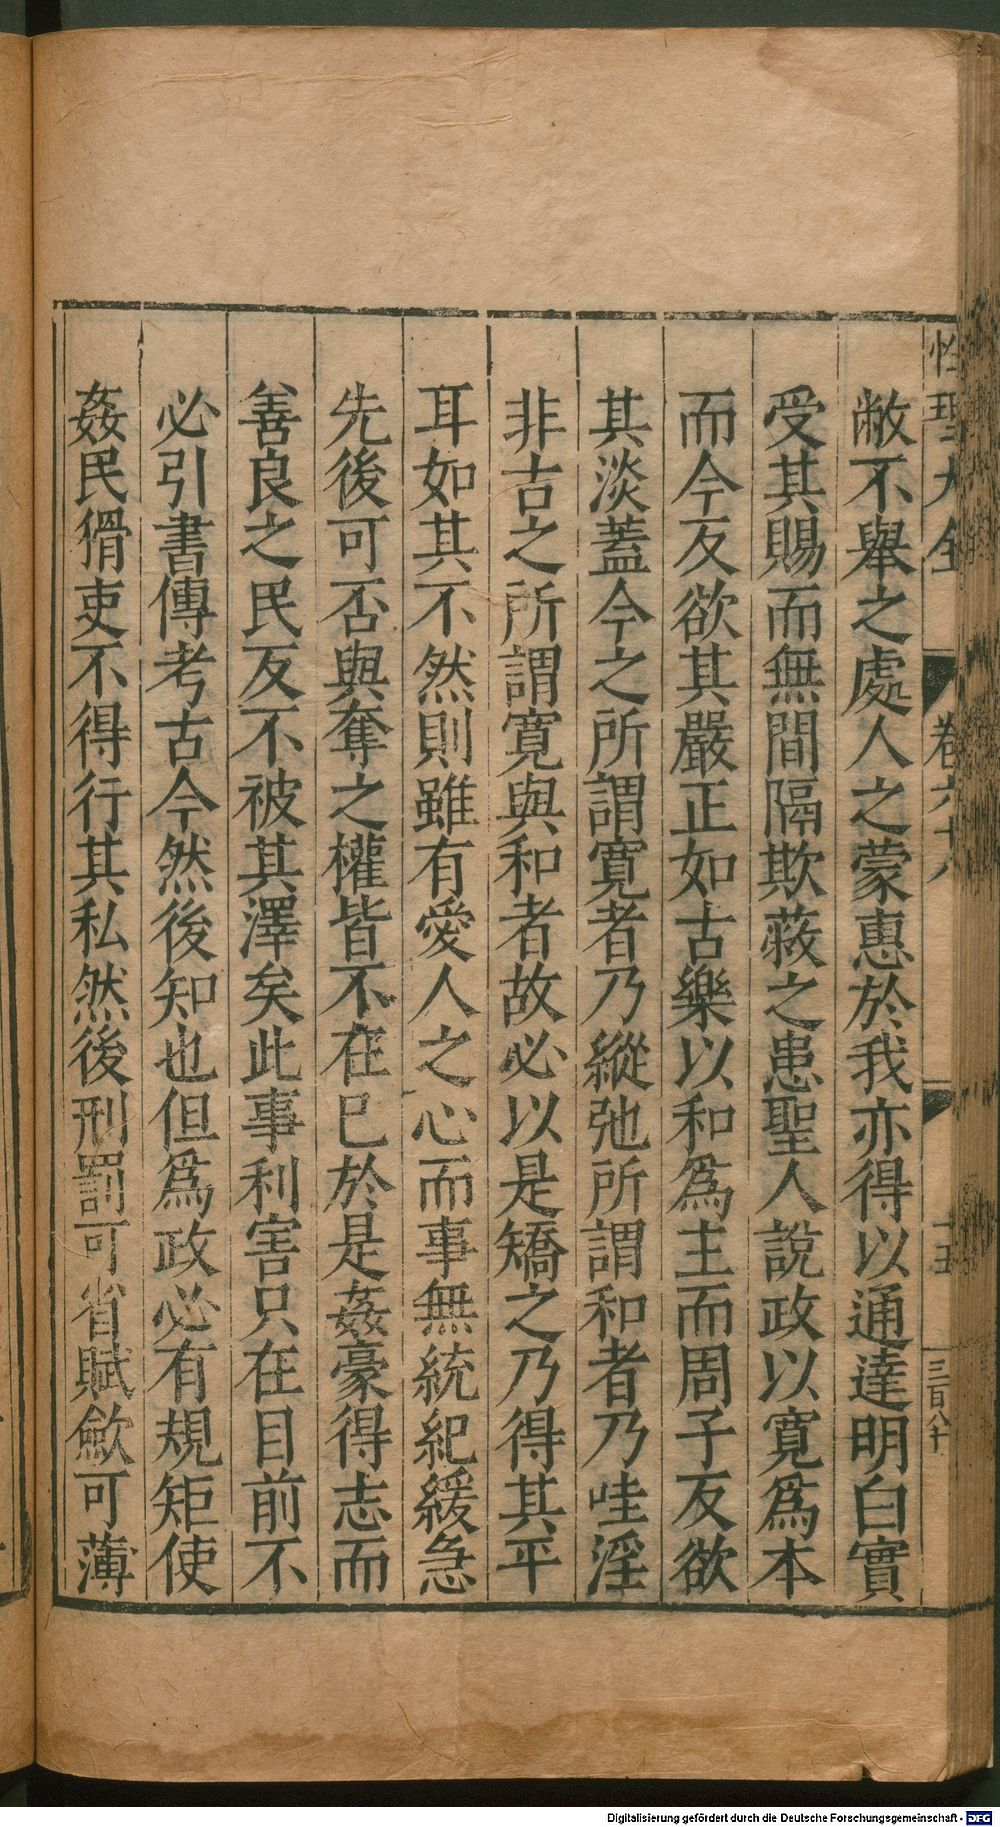 性理大全 卷六十八 十五 三百八十
敝不舉之處人之蒙惠於我亦得以通達明白實
受其賜而無間隔欺蔽之患聖人說政以寬爲本
而今反欲其嚴正如古樂以和爲主而周子反欲
其淡蓋今之所謂寬者乃縱弛所謂和者乃哇淫
非古之所謂寬與和者故必以是矯之乃得其平
耳如其不然則雖有愛人之心而事無統紀緩急
先後可否與奪之權皆不在已於是姦豪得志而
善良之民反不被其澤矣此事利害只在目前不
必引書傳考古今然後知也但爲政必有規矩使
姦民猾吏不得行其私然後刑罰可省賦斂可薄
Digitalisierung gefördert durch die Deutsche Forschungsgemeinschaft - DFG